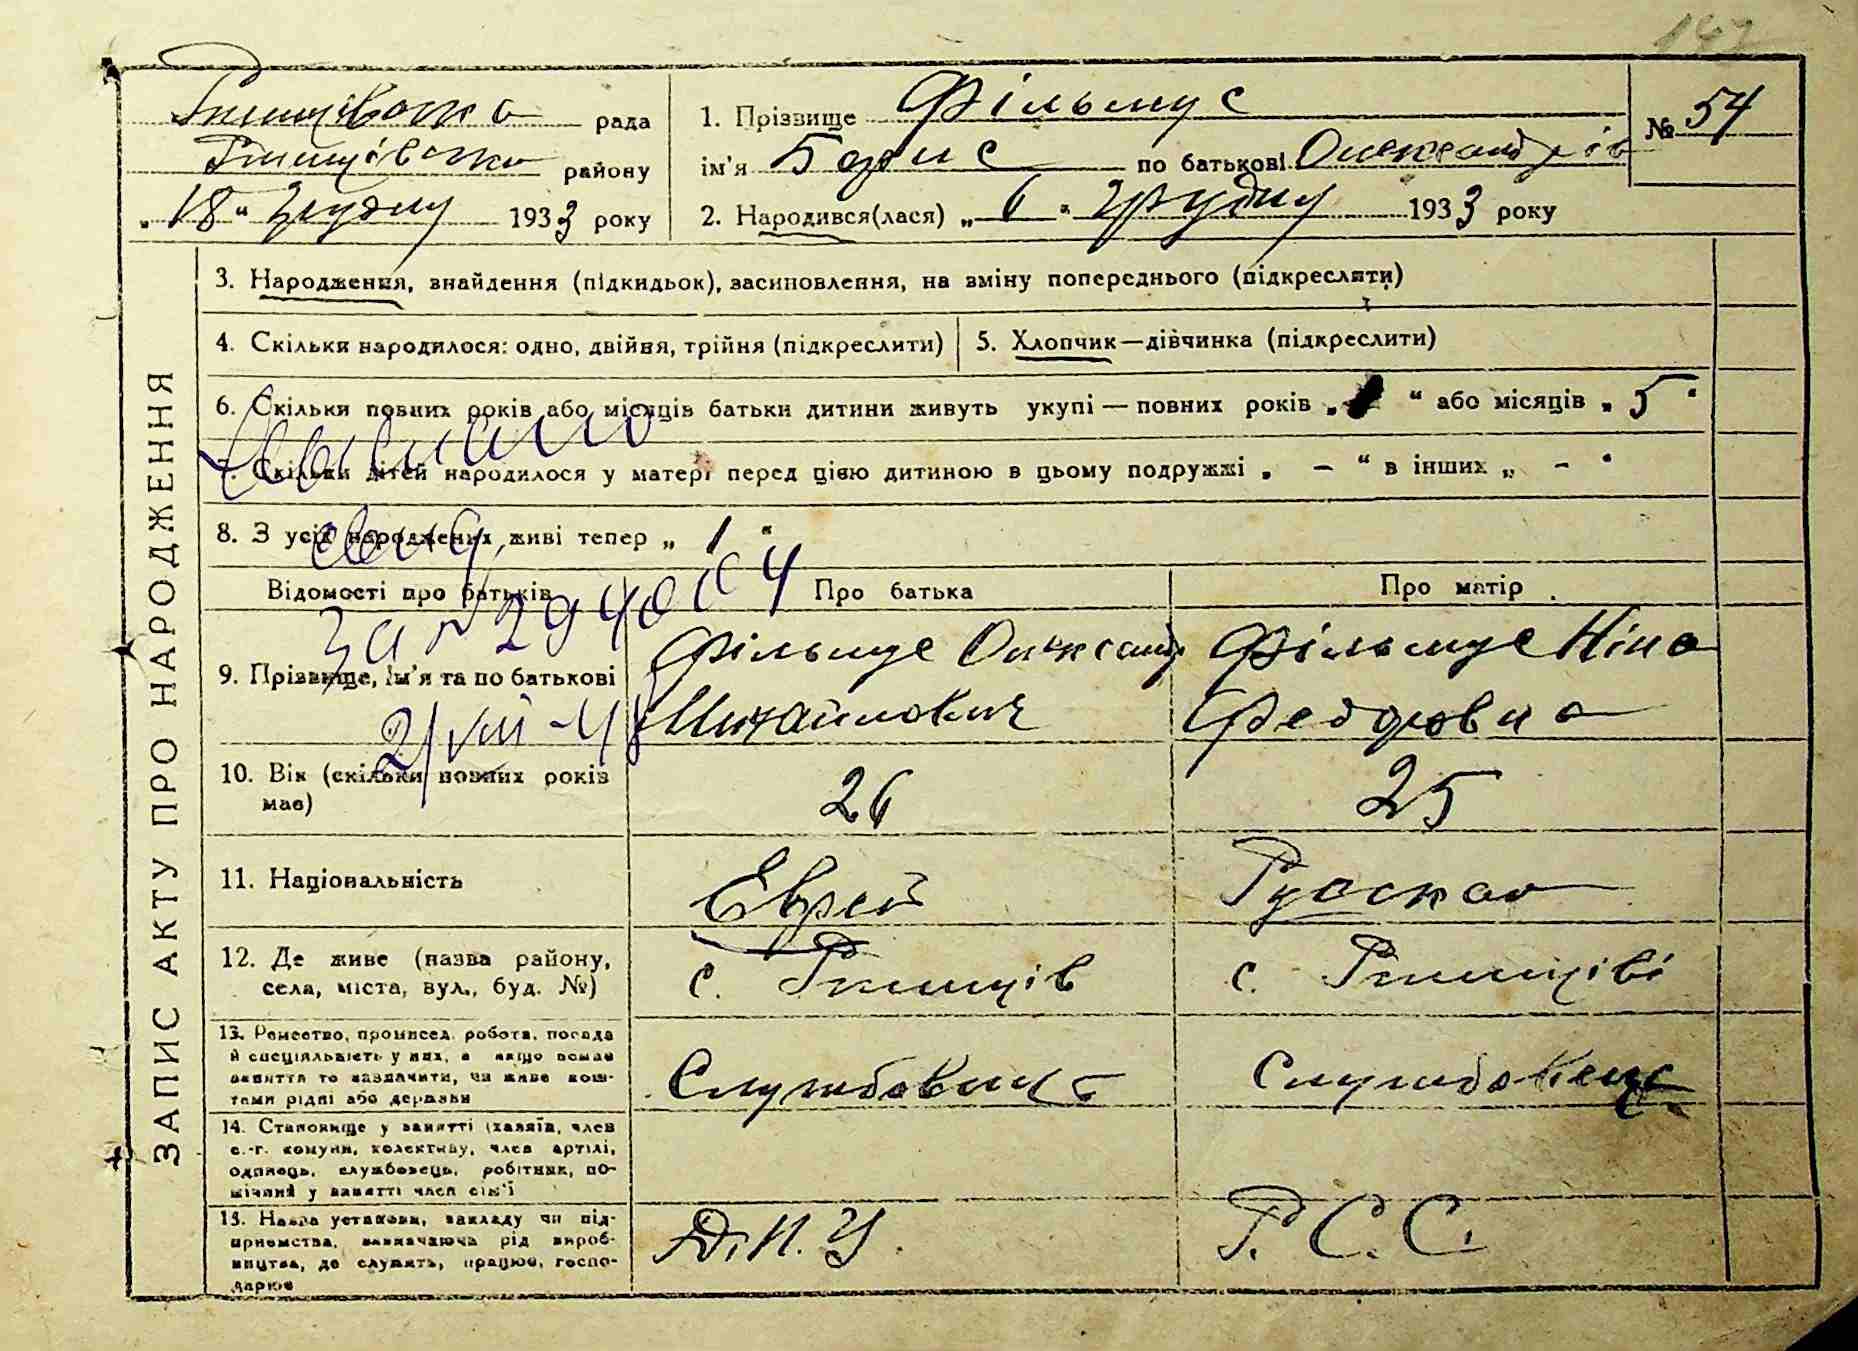 142
Ржищівська рада
Ржищівського району
„18“ грудня 1933 року
1. Прізвище Фільмус
ім'я Борис по батькові Олександрів
2. Народився(лася) „6“ грудня 1933 року
№ 54
ЗАПИС АКТУ ПРО НАРОДЖЕННЯ
3. Народження, знайдення (підкидьок), засиновлення, на зміну попереднього (підкреслити)
4. Скільки народилося: одно, двійня, трійня (підкреслити)
5. Хлопчик—дівчинка (підкреслити)
6. Скільки повних років або місяців батьки дитини живуть укупі — повних років „ “ або місяців „ 5 “
7. Скільки дітей народилося у матері перед цією дитиною в цьому подружжі „ – “ в інших „ – “
8. З усіх народжених живі тепер „ 1 “
за № 294004
2/VIII-48
Відомості про батьків
Про батька
Про матір
9. Прізвище, ім'я та по батькові
Фільмус Олександ
Михайлович
Фільмус Ніна
Федоровна
10. Вік (скільки повних років
має)
26
25
11. Національність
Еврей
Русская
12. Де живе (назва району,
села, міста, вул., буд. №)
с. Ржищів
с. Ржищіві
13. Ремество, промисел, робота, посада
й спеціяльність у них, а якщо немає
заняття то зазначити, чи живе кош-
тами рідні або держави
Службовець
Службовець
14. Становище у занятті (хазяїн, член
с.-г. комуни, колективу, член артілі,
одинець, службовець, робітник, по-
мічний у занятті член сім'ї
15. Назва установи, закладу чи під-
приємства, зазначаючи рід вироб-
ництва, де служить, працює, госпо-
дарює
Д.П.У.
Р.С.С.